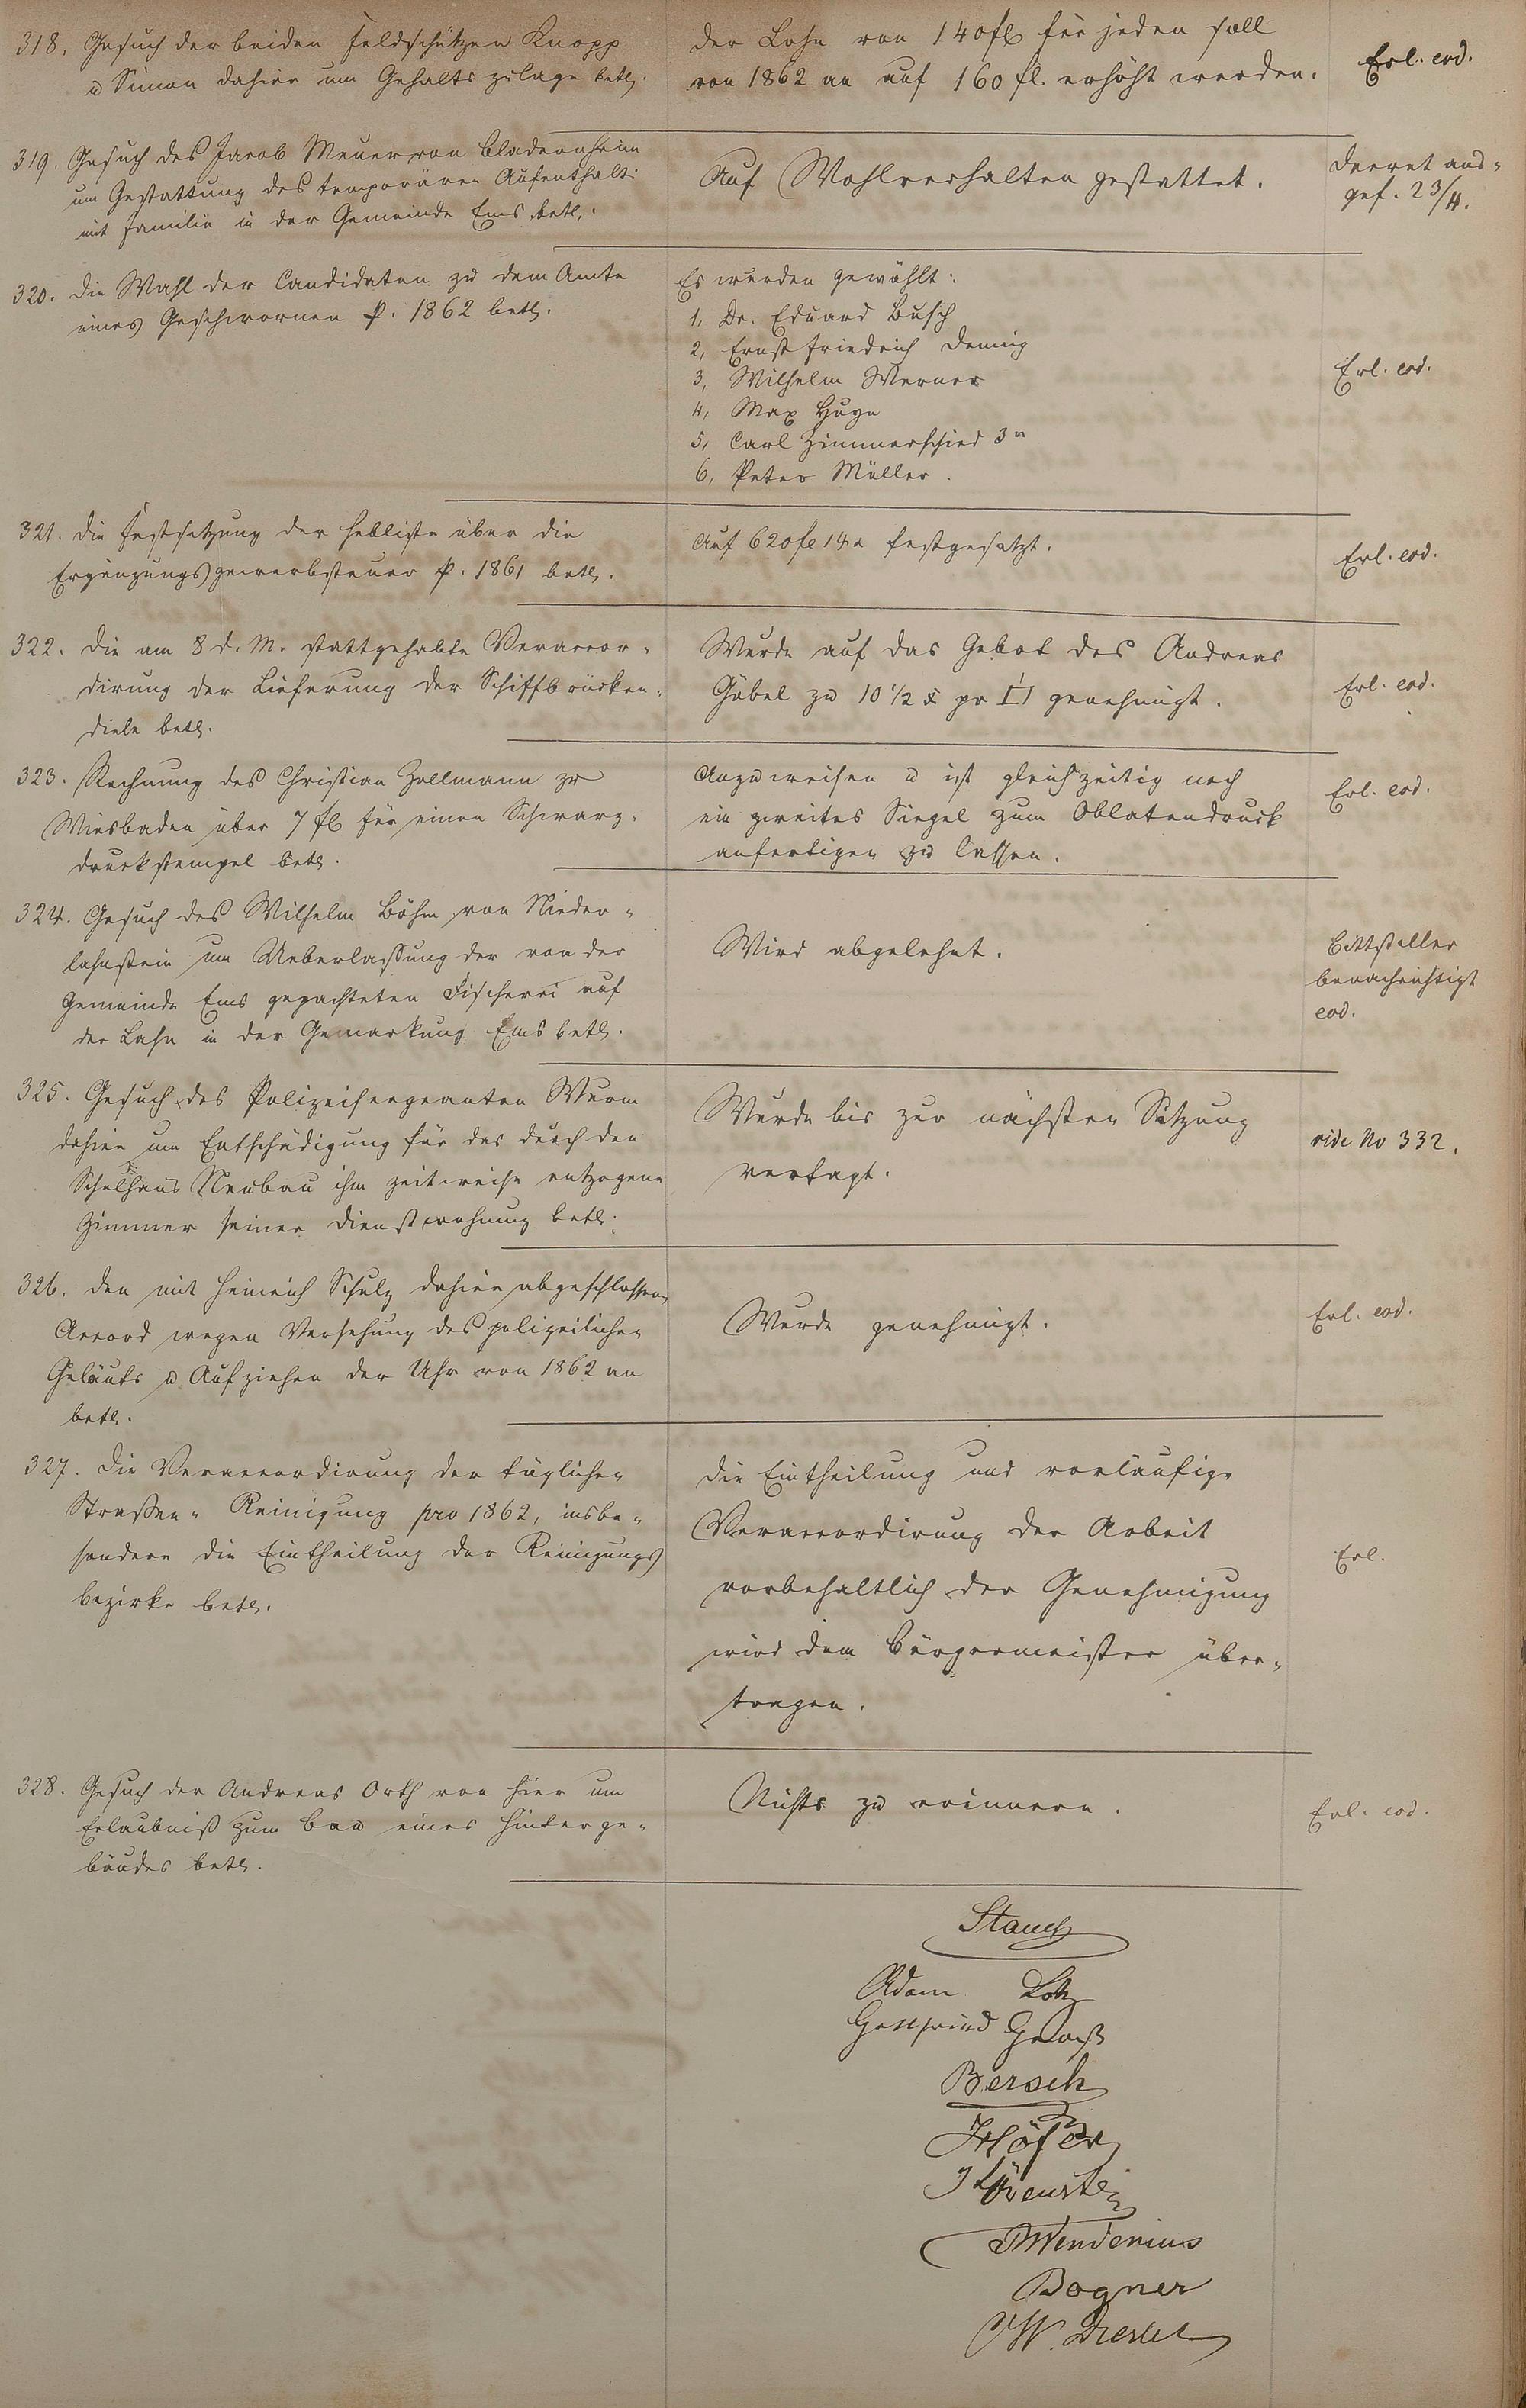 318. Gesuch der beiden Feldschützen Knopp
u Simon dahier um Gehaltszulage betr.
Der Lohn von 140 fl für jeden soll
von 1862 an auf 160 fl. erhöht werden.
Erl. eod.
319. Gesuch des Jacob Meuer von Cladernheim
um Gestattung des temporären Aufenthalts
mit Familie in der Gemeinde Ems betr.
Auf Wohlverhalten gestattet.
Decret aus-
gef. 23/4.
320. Die Wahl der Candidaten zu dem Amte
eines Geschwornen p. 1862 betr.
Es wurden gewählt:
1, Dr. Eduard Busch
2, Ernst Friedrich Dening
3, Wilhelm Werner
4, Max Huyn
5, Carl Zimmerschied 3r
6, Peter Müller.
Erl. eod.
321. Die Festsetzung der Hebliste über die
Ergänzungsgewerbsteuer p. 1861 betr.
Auf 620 fl 14 x festgesetzt.
Erl. eod.
322. Die am 8 d. M. stattgehabte Veraccor-
dirung der Lieferung der Schiffbrücken-
diele betr.
Wurde auf das Gebot des Andreas
Göbel zu 10 1/2 x pr □' genehmigt.
Erl. eod.
323. Rechnung des Christian Zollmann zu
Wiesbaden über 7 fl für einen Schwarz-
druckstempel betr.
Anzuweisen u ist gleichzeitig noch
ein zweites Siegel zum Oblatendruck
anfertigen zu lassen.
Erl. eod.
324. Gesuch des Wilhelm Böhm von Nieder-
lahnstein um Ueberlassung der von der
Gemeinde Ems gepachteten Fischerei auf
der Lahn in der Gemarkung Ems betr.
Wird abgelehnt.
Bittsteller
benachrichtigt
eod.
325. Gesuch des Polizeisergeanten Wurm
dahier um Entschädigung für das durch den
Schulhaus Neubau ihm zeitweise entzogene
Zimmer seiner Dienstwohnung betr.
Wurde bis zur nächsten Sitzung
vertagt.
vide No 332.
326. Den mit Heinrich Schulz dahier abgeschlossenen
Accord wegen Versehung des polizeilichen
Geläuts u Aufziehen der Uhr von 1862 an
betr.
Wurde genehmigt.
Erl. eod.
327. Die Veraccordirung der täglichen
Straßen-Reinigung pro 1862, insbe-
sondere die Eintheilung der Reinigungs
bezirke betr.
Die Eintheilung und vorläufige
Veraccordirung der Arbeit
vorbehaltlich der Genehmigung
wird dem Bürgermeister über-
tragen.
Erl.
328. Gesuch der Andreas Orth von hier um
Erlaubniß zum Bau eines Hinterge-
bäudes betr.
Nichts zu erinnern.
Erl. eod.
Adam Lotz
Bersch
Höfer
Wendenius
Bogner